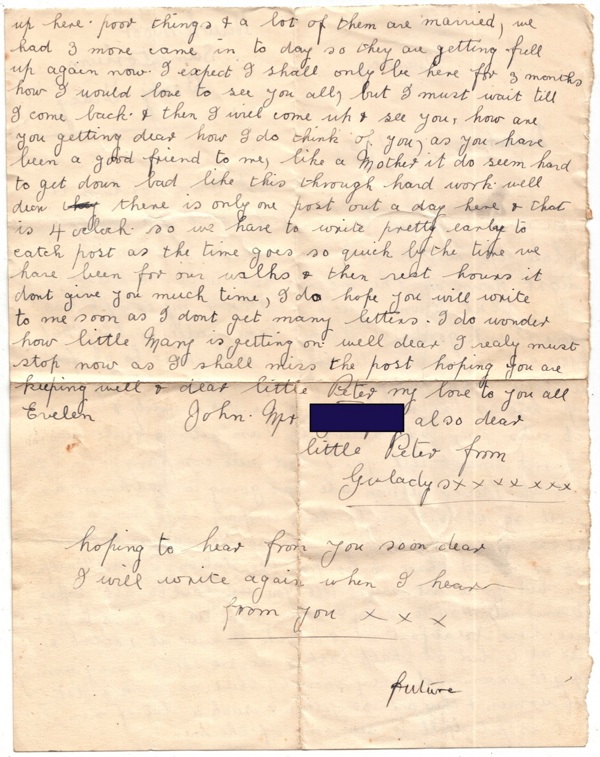 up here. poor things & a lot of them are married, we
had 3 more came in to day so they are getting full
up again now. I expect I shall only be here for 3 months
how I would love to see you all, but I must wait till
I come back. & then I will come up & see you, how are
you getting dear how I do think of you, as you have
been a good friend to me, like a Mother it do seem hard
to get down bad like this through hard work. well
dear there is only one post out a day here & that
is 4 oclock. so we have to write pretty earley to
catch post as the time goes so quick by the time we
have been for our walks & then rest hours it
dont give you much time, I do hope you will write
to me soon as I dont get many letters. I do wonder
how little Mary is getting on well dear I realy must
stop now as I shall miss the post hoping you are
keeping well & dear little Peter my love to you all
Evelen John. Mr also dear
little Peter from
Guladys x x x x x x x
hoping to hear from you soon dear
I will write again when I hear
from you x x x
future